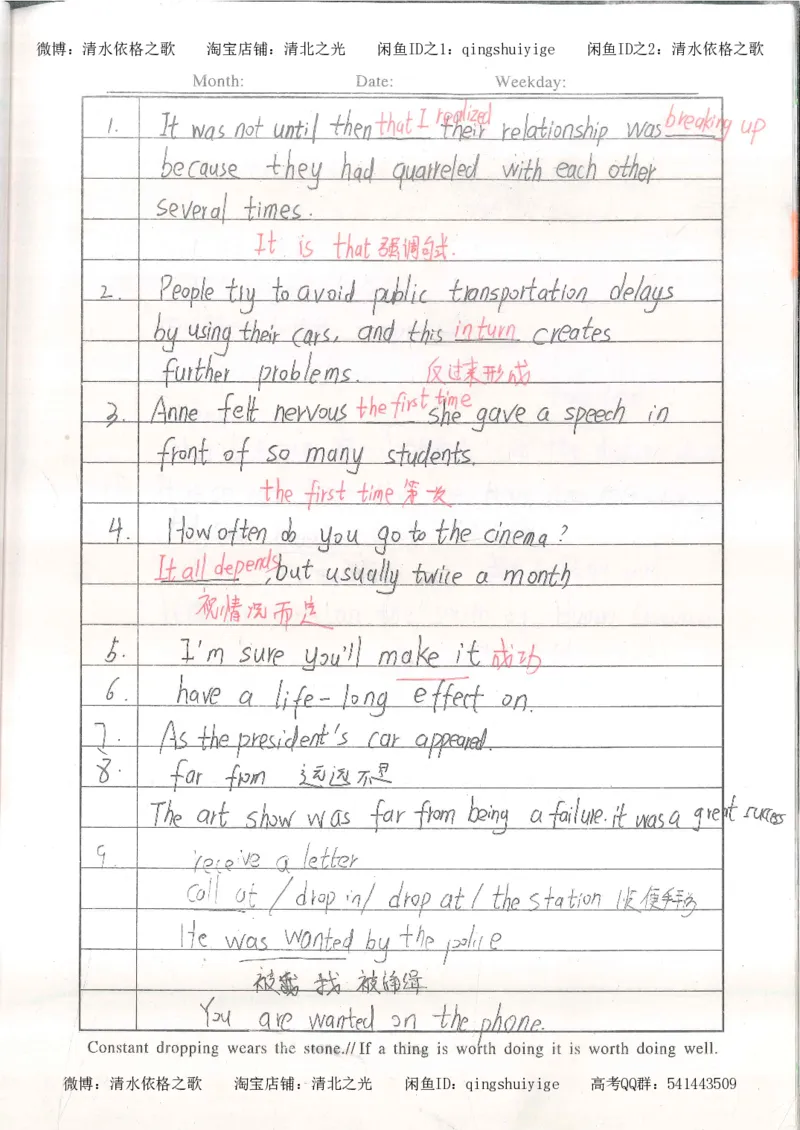 微博：清水依格之歌 淘宝店铺：清北之光 闲鱼ID之1：qingshuiyige 闲鱼ID之2：清水依格之歌
Month: Date: Weekday:
1. It was not until then that I realized their relationship was breaking up
because they had quarreled with each other
several times.
It is that 强调句式.
2. People try to avoid public transportation delays
by using their cars, and this in turn creates
further problems. 反过来形成
3. Anne felt nervous the first time she gave a speech in
front of so many students.
the first time 第一次
4. How often do you go to the cinema?
It all depends, but usually twice a month
视情况而定
5. I'm sure you'll make it 成功
6. have a life-long effect on.
7. As the president's car appeared.
8. far from 远远不是
The art show was far from being a failure. it was a great success
9. receive a letter
call at / drop in / drop at / the station 顺便拜访
He was wanted by the police
被 找 被通缉
You are wanted on the phone.
Constant dropping wears the stone.//If a thing is worth doing it is worth doing well.
微博：清水依格之歌 淘宝店铺：清北之光 闲鱼ID：qingshuiyige 高考QQ群：541443509